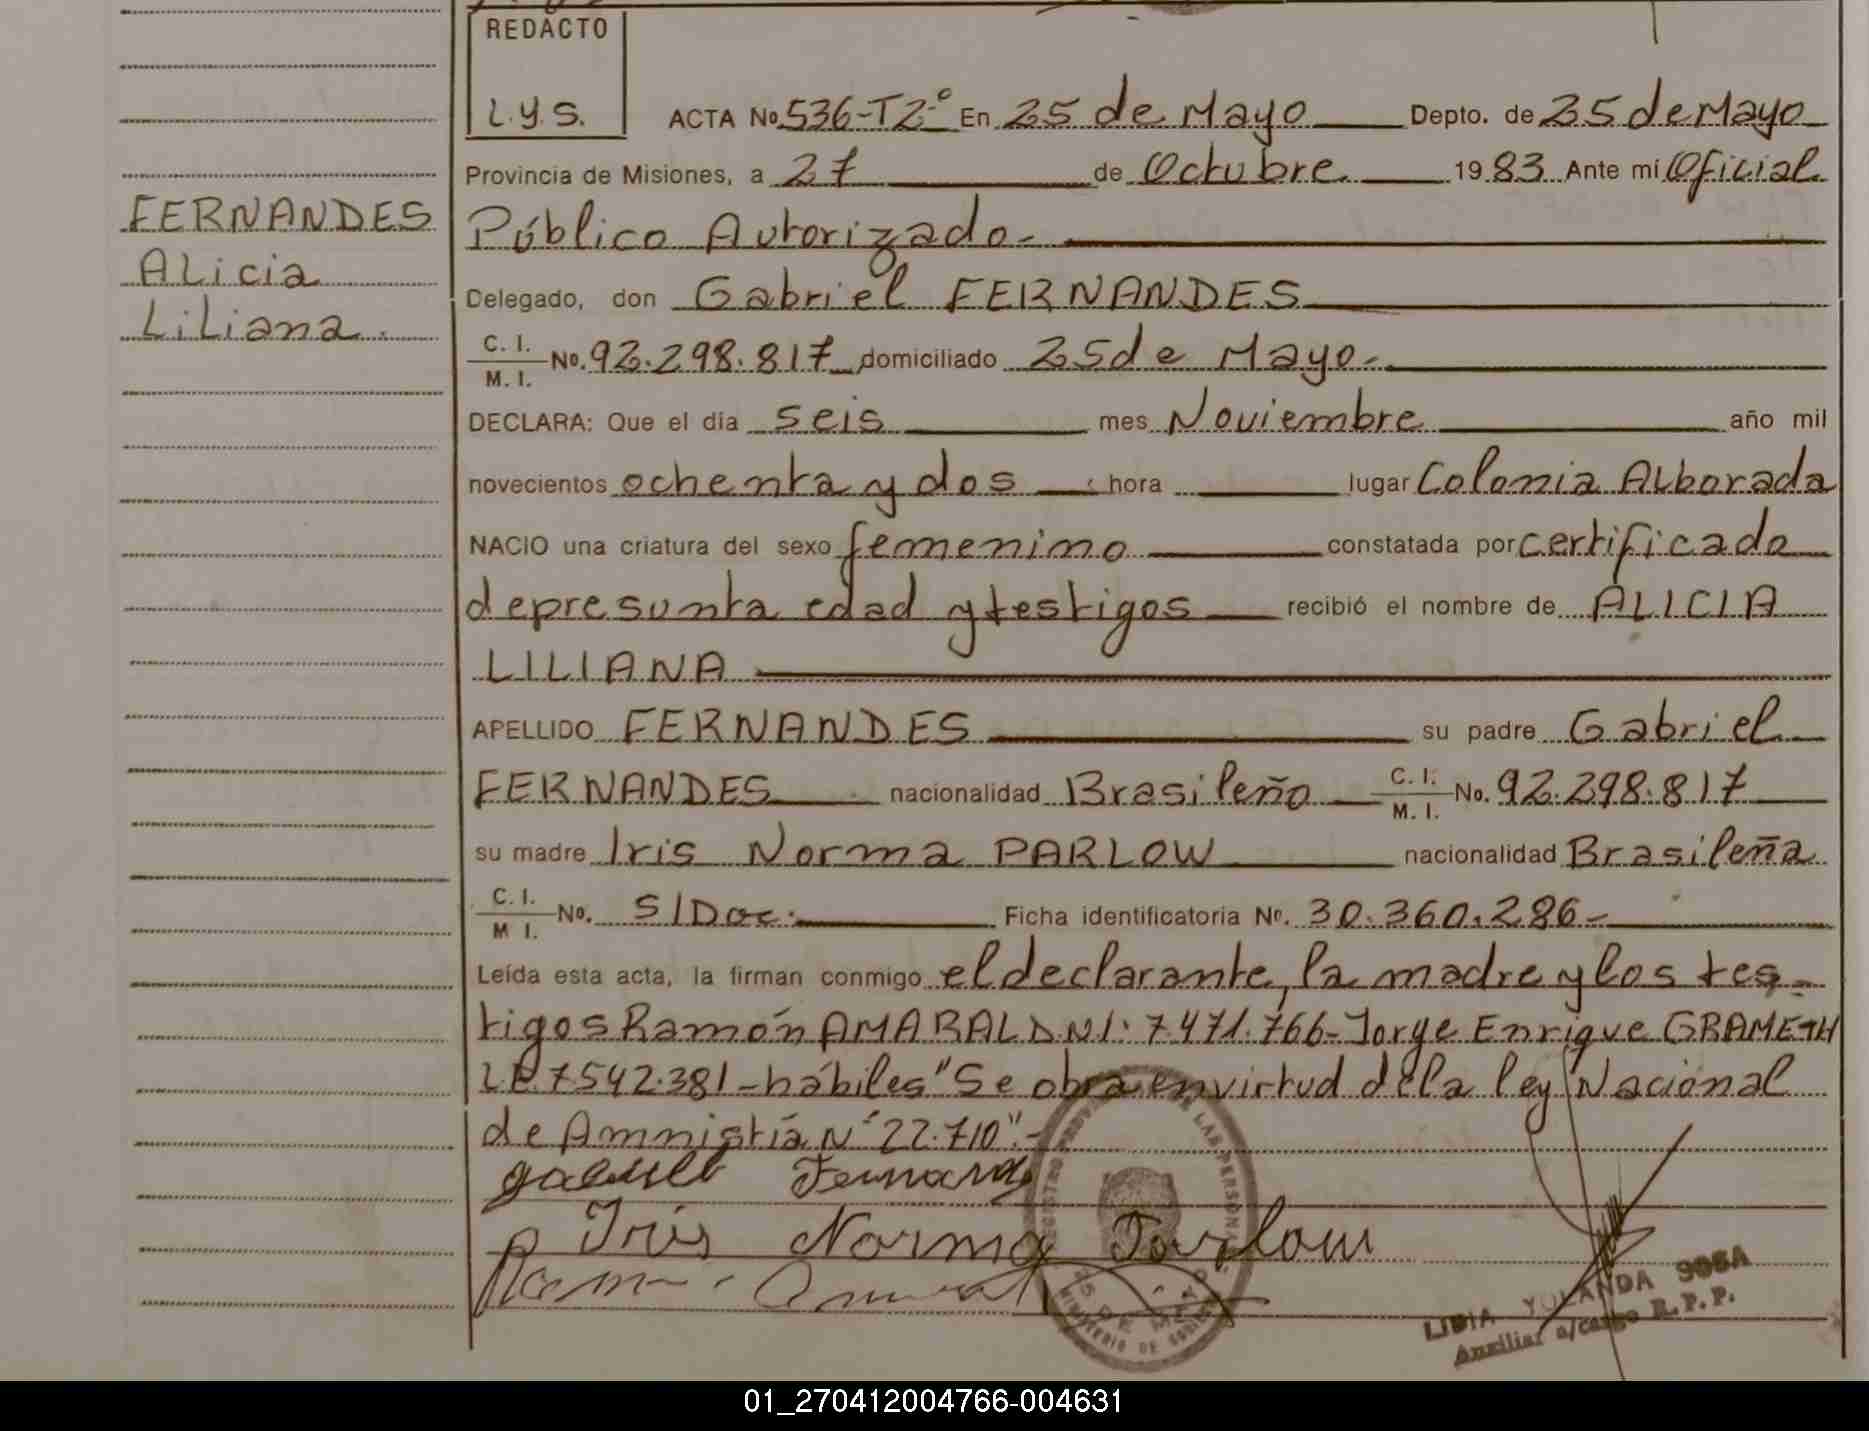 REDACTO
L.Y.S.
ACTA No 536-T2º En 25 de Mayo Depto. de 25 de Mayo
Provincia de Misiones, a 27 de Octubre 1983 Ante mí Oficial
Público Autorizado.-
Delegado, don Gabriel FERNANDES
C. I. / M. I. No. 92.298.817 domiciliado 25 de Mayo.-
DECLARA: Que el día seis mes Noviembre año mil
novecientos ochenta y dos hora lugar Colonia Alborada
NACIO una criatura del sexo femenino constatada por certificado
de presunta edad y testigos recibió el nombre de ALICIA
LILIANA
APELLIDO FERNANDES su padre Gabriel
FERNANDES nacionalidad Brasileño C. I. / M. I. No. 92.298.817
su madre Iris Norma PARLOW nacionalidad Brasileña
C. I. / M I. No. S/Doc. Ficha identificatoria Nº. 30.360.286.-
Leída esta acta, la firman conmigo el declarante, la madre y los tes-
tigos Ramón AMARAL D.N.I. 7.471.766- Jorge Enrique GRAMETH
L.E 7.542.381-hábiles "Se obra en virtud de la ley Nacional
de Amnistía Nº 22.710".-
Iris Norma Parlow
FERNANDES
Alicia
Liliana.
25 DE MAYO
MINISTERIO DE GOBIERNO
LIDIA YOLANDA SOSA
Auxiliar a/cargo R.P.P.
01_270412004766-004631